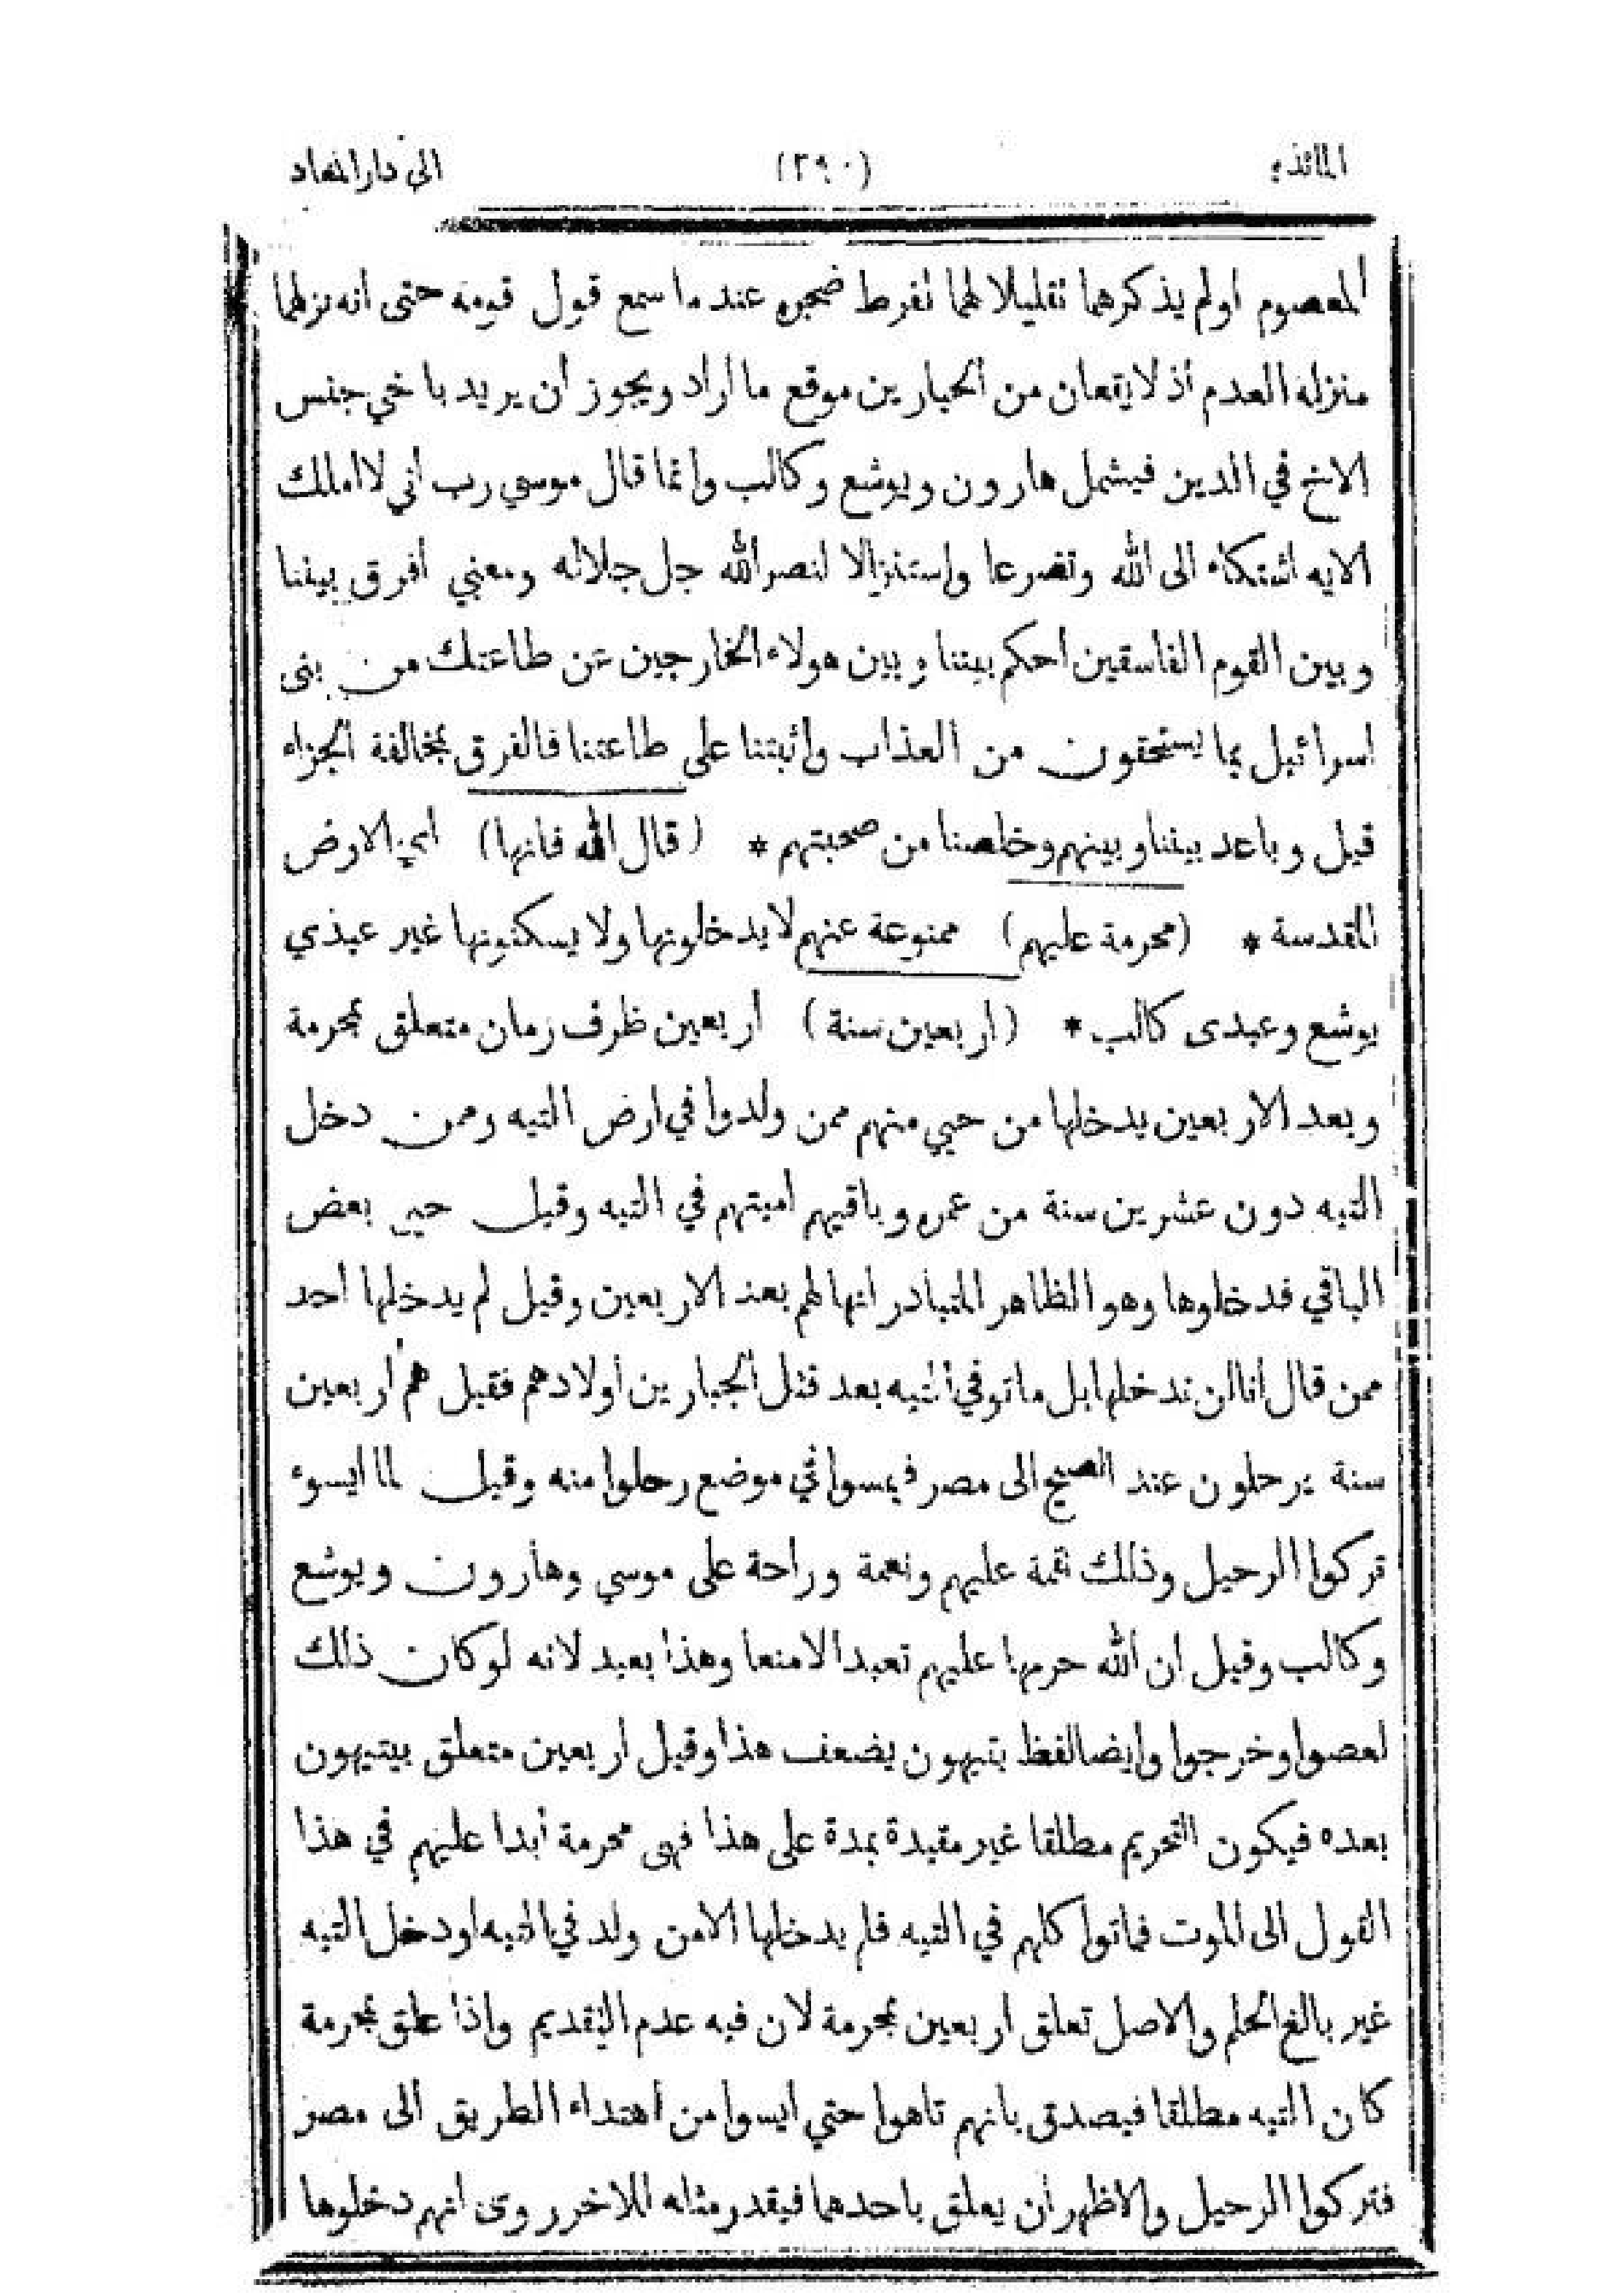 المائدة
(٢٩٠)
الى دار المعاد
المعصوم اولم يذكرهما تقليلا لهما لفرط ضجره عند ما سمع قول قومه حتى انه نزلهما
منزلة العدم اذ لا يقعان من الجبارين موقع ما اراد ويجوز ان يريد باخي جنس
الاخ في الدين فيشمل هارون ويوشع وكالب وانما قال موسي رب اني لا املك
الايه اشتكاء الى الله وتضرعا واستنزالا لنصر الله جل جلاله ومعني افرق بيننا
وبين القوم الفاسقين احكم بيننا وبين هولاء الخارجين عن طاعتك من بنى
اسرائيل بما يستحقون من العذاب واثبتنا على طاعتنا فالفرق بمخالفة الجزاء
قيل وباعد بيننا وبينهم وخلصنا من صحبتهم * (قال الله فانها) اي الارض
المقدسة * (محرمة عليهم) ممنوعة عنهم لا يدخلونها ولا يسكنونها غير عبذي
يوشع وعبدى كالب * (اربعين سنة) اربعين ظرف زمان متعلق بمحرمة
وبعد الاربعين يدخلها من حيي منهم ممن ولدوا في ارض التيه وممن دخل
التيه دون عشرين سنة من عمره وباقيهم اميتهم في التيه وقيل حيي بعض
الباقي فدخلوها وهو الظاهر المتبادر انها لهم بعد الاربعين وقيل لم يدخلها احد
ممن قال انا لن ندخلها بل ماتو في التيه بعد قتل الجبارين أولادهم فقيل هم أربعين
سنة يرحلون عند الصبح الى مصر فيمسوا في موضع رحلوا منه وقيل لما ايسوء
تركوا الرحيل وذلك نقمة عليهم ونعمة وراحة على موسي وهارون ويوشع
وكالب وقيل ان الله حرمها عليهم تعبدا لا منعا وهذا بعيد لانه لو كان ذلك
لعصوا وخرجوا وايضا لفظ يتيهون يضعف هذا وقيل اربعين متعلق بيتيهون
بعده فيكون التحريم مطلقا غير مقيدة بمدة على هذا فهى محرمة أبدا عليهم في هذا
القول الى الموت فماتوا كلهم في التيه فلم يدخلها الا من ولد في التيه او دخل التيه
غير بالغ الحلم والاصل تعلق اربعين بمحرمة لان فيه عدم التقديم واذا علق بمحرمة
كان التيه مطلقا فيصدق بانهم تاهوا حتي ايسوا من اهتداء الطريق الى مصر
فتركوا الرحيل والاظهر أن يعلق باحدهما فيقدر مثله للاخر روى انهم دخلوها